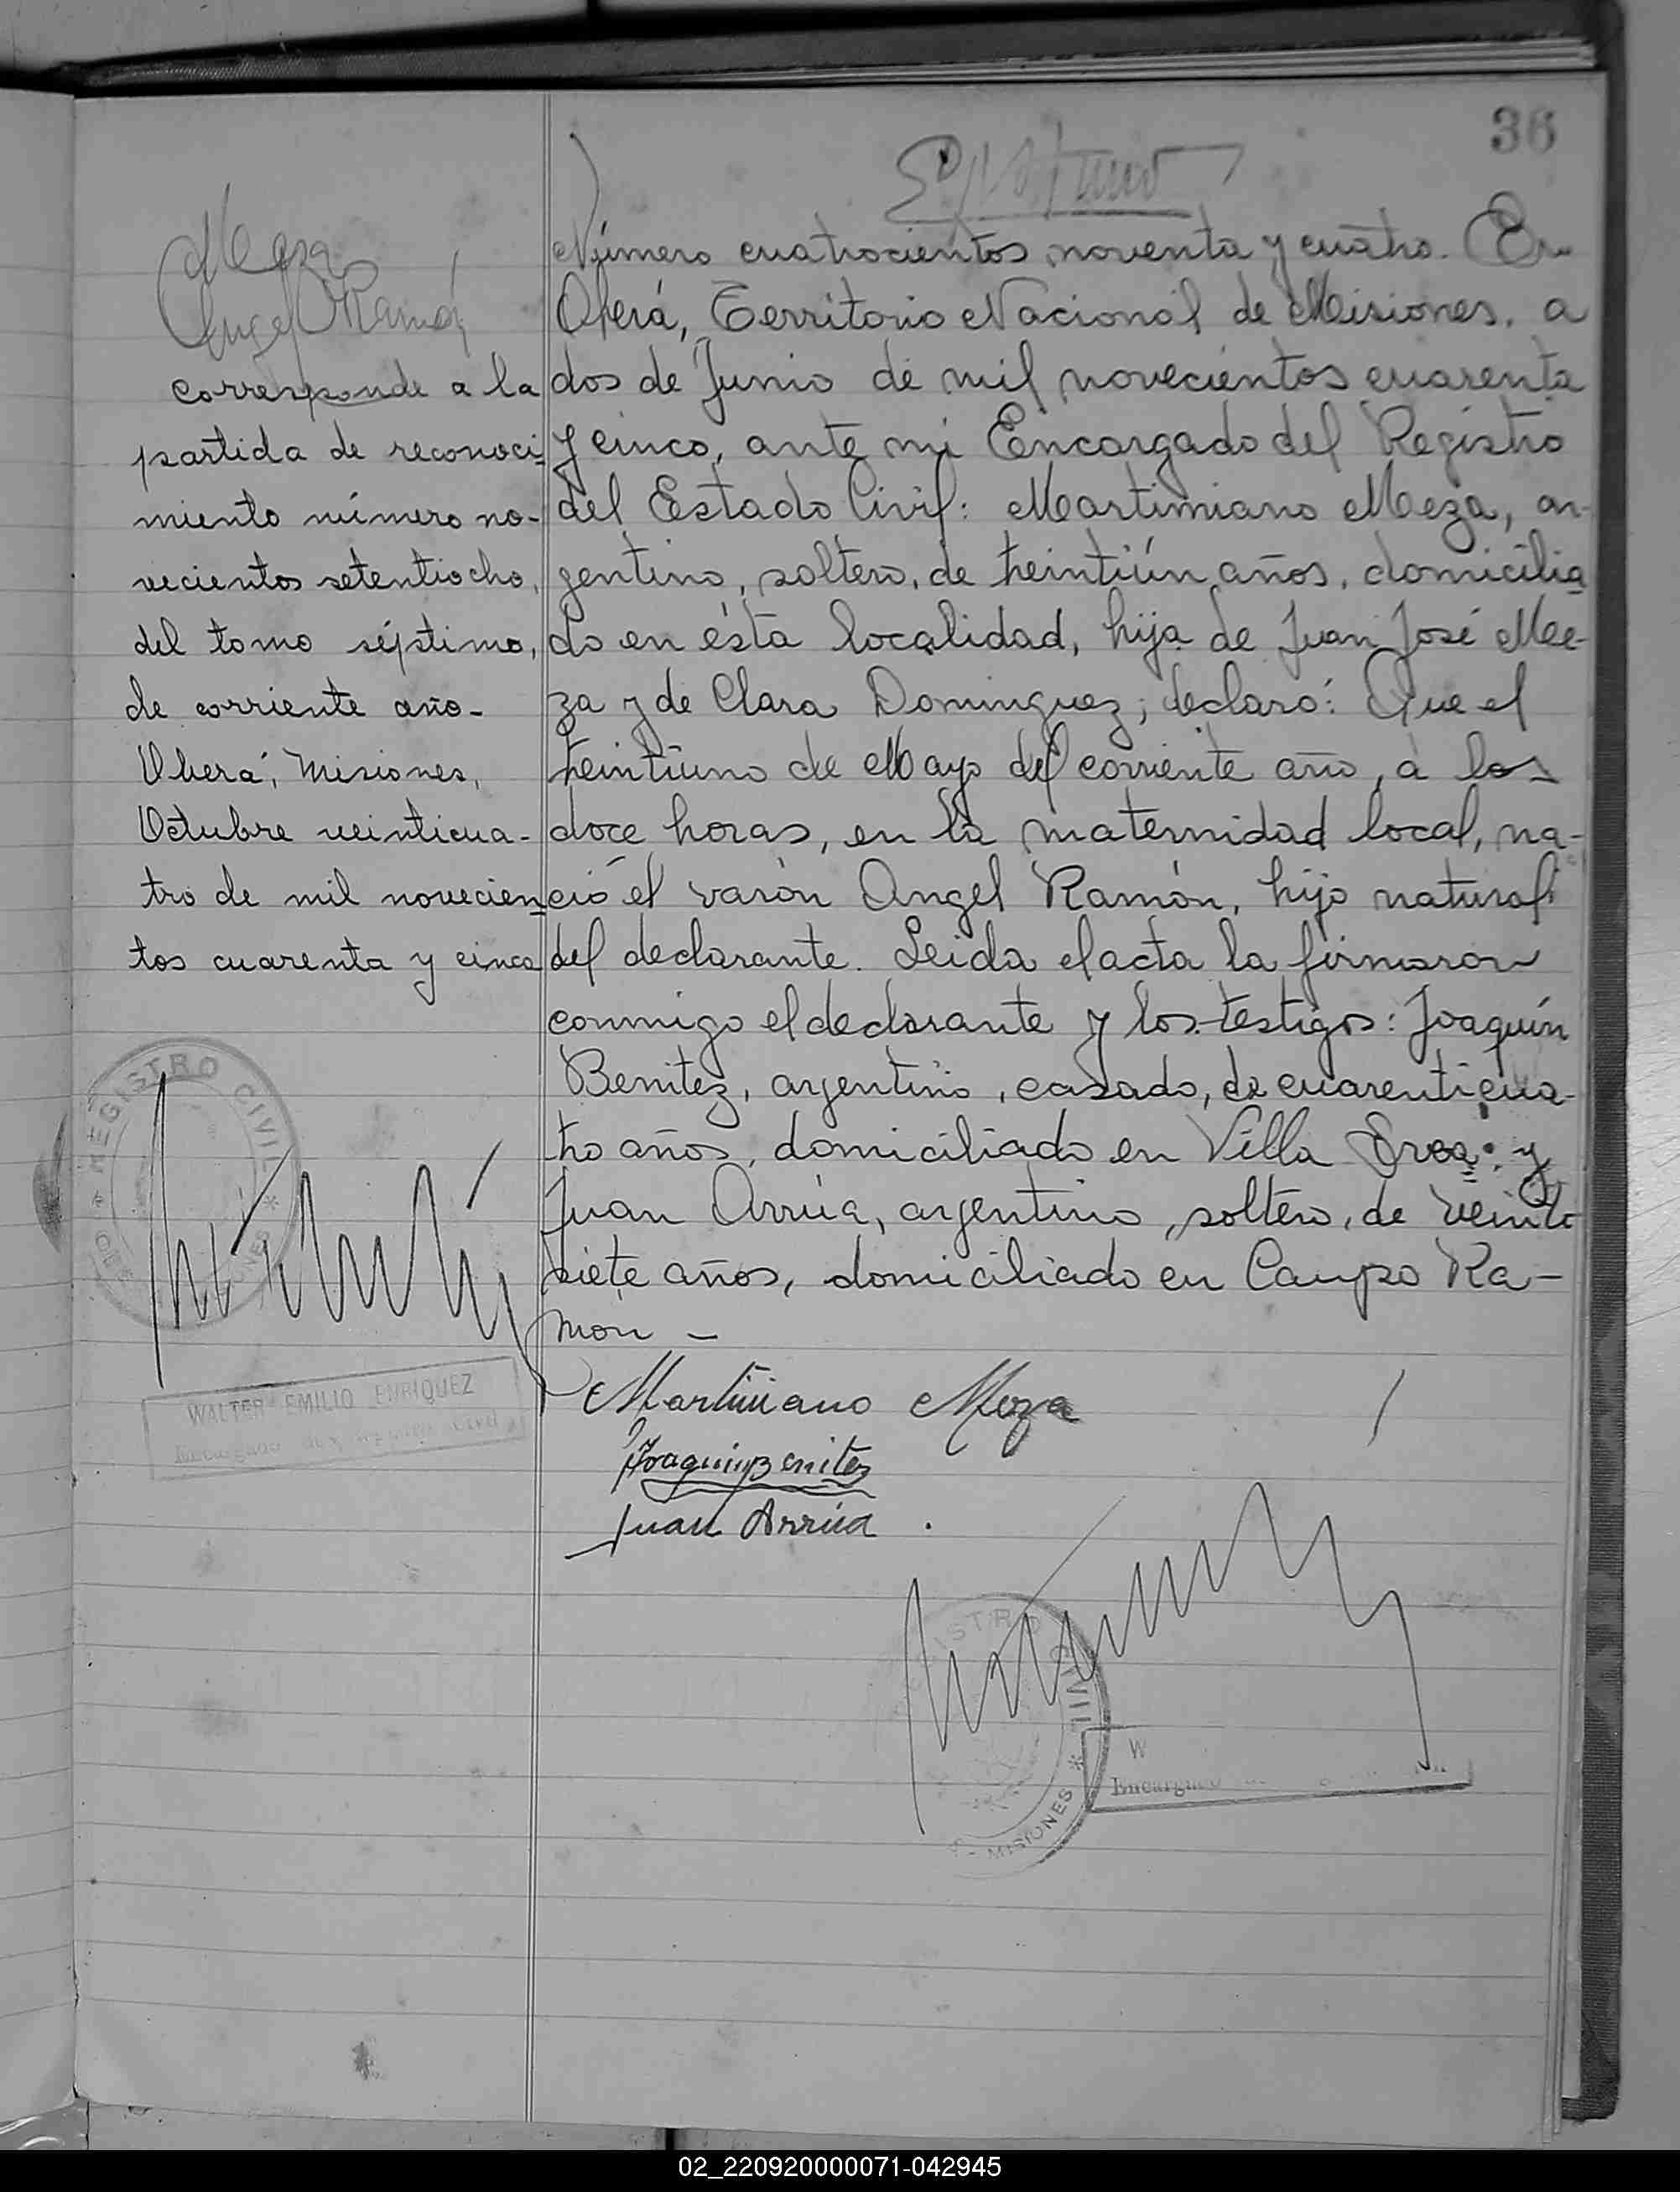 36
Meza
Angel Ramón
corresponde a la
partida de reconoci-
miento número no-
vecientos setentiocho,
del tomo séptimo,
de corriente año-
Oberá, Misiones,
Octubre veinticua-
tro de mil novecien-
tos cuarenta y cinco
REGISTRO CIVIL
WALTER EMILIO ENRIQUEZ
Encargado del Registro Civil
Número cuatrocientos noventa y cuatro. En
Oberá, Territorio Nacional de Misiones, a
dos de Junio de mil novecientos cuarenta
y cinco, ante mi Encargado del Registro
del Estado Civil: Martimiano Meza, ar-
gentino, soltero, de treintiún años, domicilia
do en ésta localidad, hija de Juan José Me-
za y de Clara Dominguez; declaró: Que el
treintiuno de Mayo del corriente año, a las
doce horas, en la maternidad local, na-
ció el varón Angel Ramón, hijo natural
del declarante. Leida el acta la firmaron
conmigo el declarante y los testigos: Joaquín
Benitez, argentino, casado, de cuarenticua-
tro años, domiciliado en Villa y
Juan Arrúa, argentino, soltero, de veinti
siete años, domiciliado en Campo Ra-
mon -
Martiniano Meza
Joaquin Benitez
Juan Arrúa .
REGISTRO CIVIL
MISIONES
02_220920000071-042945